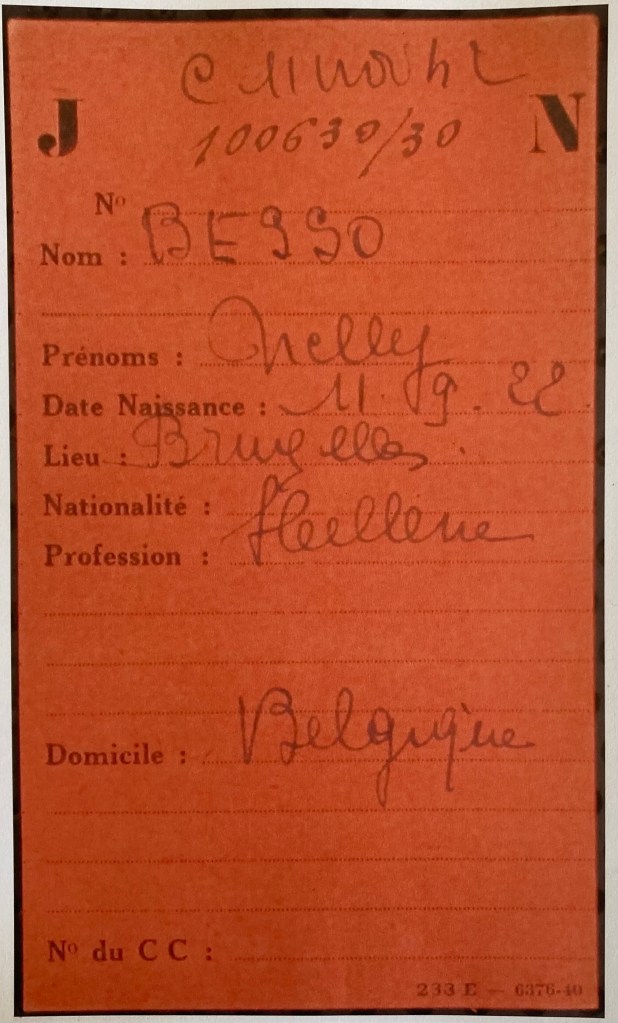 C 11 nov 42
J N
100630/30
No
Nom : BESSO
Prénoms : Nelly
Date Naissance : 11.9.22
Lieu : Bruxelles
Nationalité : Hellene
Profession :
Belgique
Domicile :
No du C C :
233 E — 6376-40